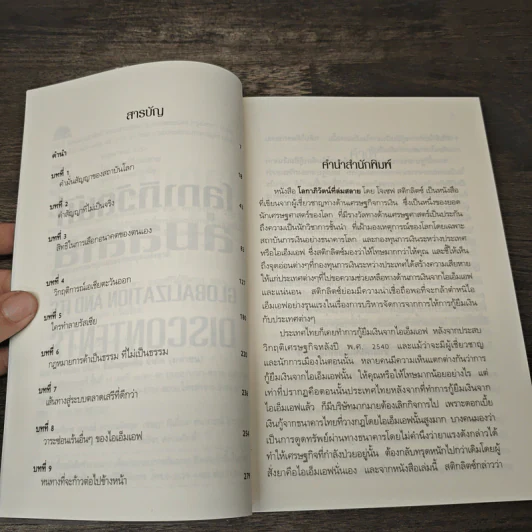 สารบัญ
คำนำ
บทที่ 1
คำมั่นสัญญาของสถาบันโลก
บทที่ 2
คำสัญญาที่ไม่เป็นจริง
บทที่ 3
สิทธิในการเลือกอนาคตของตนเอง
บทที่ 4
วิกฤติการณ์เอเชียตะวันออก
บทที่ 5
ใครทำลายรัสเซีย
บทที่ 6
กฎหมายการค้าเป็นธรรม ที่ไม่เป็นธรรม
บทที่ 7
เส้นทางสู่ระบบตลาดเสรีที่ดีกว่า
บทที่ 8
วาระซ่อนเร้นอื่นๆ ของไอเอ็มเอฟ
บทที่ 9
หนทางที่จะก้าวต่อไปข้างหน้า
คำนำสำนักพิมพ์
หนังสือ โลกาภิวัตน์ที่ล่มสลาย โดย โจเซฟ สติกลิตซ์ เป็นหนังสือ
ที่เขียนจากผู้เชี่ยวชาญทางด้านเศรษฐกิจการเงิน ซึ่งเป็นหนึ่งของยอด
นักเศรษฐศาสตร์ของโลก ที่มีรางวัลทางด้านเศรษฐศาสตร์เป็นประกัน
ถึงความเป็นนักวิชาการชั้นนำ ที่เฝ้ามองเหตุการณ์ของโลกโดยเฉพาะ
สถาบันการเงินอย่างธนาคารโลก และกองทุนการเงินระหว่างประเทศ
หรือไอเอ็มเอฟ ซึ่งสติกลิตซ์มองว่าให้โทษมากกว่าให้คุณ และชี้ให้เห็น
ถึงจุดอ่อนต่างๆที่กองทุนการเงินระหว่างประเทศได้สร้างความเสียหาย
ให้แก่ประเทศต่างๆที่ไปขอความช่วยเหลือทางด้านการเงินจากไอเอ็มเอฟ
และแน่นอน สติกลิตซ์ย่อมมีความน่าเชื่อถือพอที่จะกล้าตำหนิไอ
เอ็มเอฟอย่างรุนแรงในเรื่องการบริหารจัดการจากการให้การกู้ยืมเงิน
กับประเทศต่างๆ
ประเทศไทยก็เคยทำการกู้ยืมเงินจากไอเอ็มเอฟ หลังจากประสบ
วิกฤติเศรษฐกิจหลังปี พ.ศ. 2540 และแม้ว่าจะมีผู้เชี่ยวชาญ
และนักการเมืองในตอนนั้น หลายคนมีความเห็นแตกต่างกันว่าการ
กู้ยืมเงินจากไอเอ็มเอฟนั้น ให้คุณหรือให้โทษมากน้อยอย่างไร แต่
เท่าที่ปรากฏคือตอนนั้นประเทศไทยหลังจากที่ทำการกู้ยืมเงินจาก
ไอเอ็มเอฟแล้ว ก็มีบริษัทมากมายต้องเลิกกิจการไป เพราะดอกเบี้ย
เงินกู้จากธนาคารไทยที่วางกฎโดยไอเอ็มเอฟนั้นสูงมาก บางคนมองว่า
เป็นการดูดทรัพย์ผ่านทางธนาคารโดยไม่คำนึงว่ายาแรงดังกล่าวได้
ทำให้เศรษฐกิจที่กำลังป่วยอยู่นั้น ต้องกลับทรุดหนักไปกว่าเดิมโดยผู้
สั่งยาคือไอเอ็มเอฟนั่นเอง และจากหนังสือเล่มนี้ สติกลิตซ์กล่าวว่า